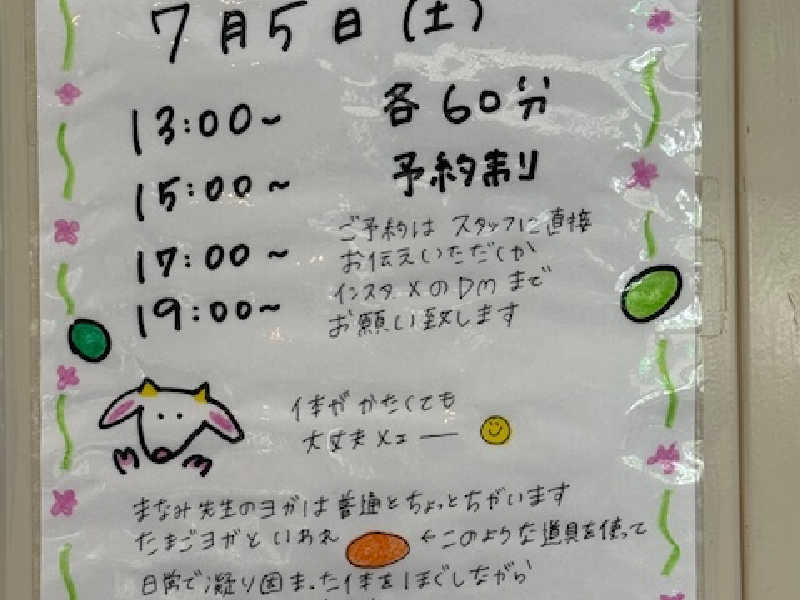 7月5日(土)
13:00~
15:00~
17:00~
19:00~
各60分
予約制
ご予約は スタッフに直接
お伝えいただくか
インスタ XのDMまで
お願い致します
体がかたくても
大丈夫メェー
まなみ先生のヨガは普通とちょっとちがいます
たまごヨガといわれ ←このような道具を使って
日常で凝り固まった体をほぐしながら